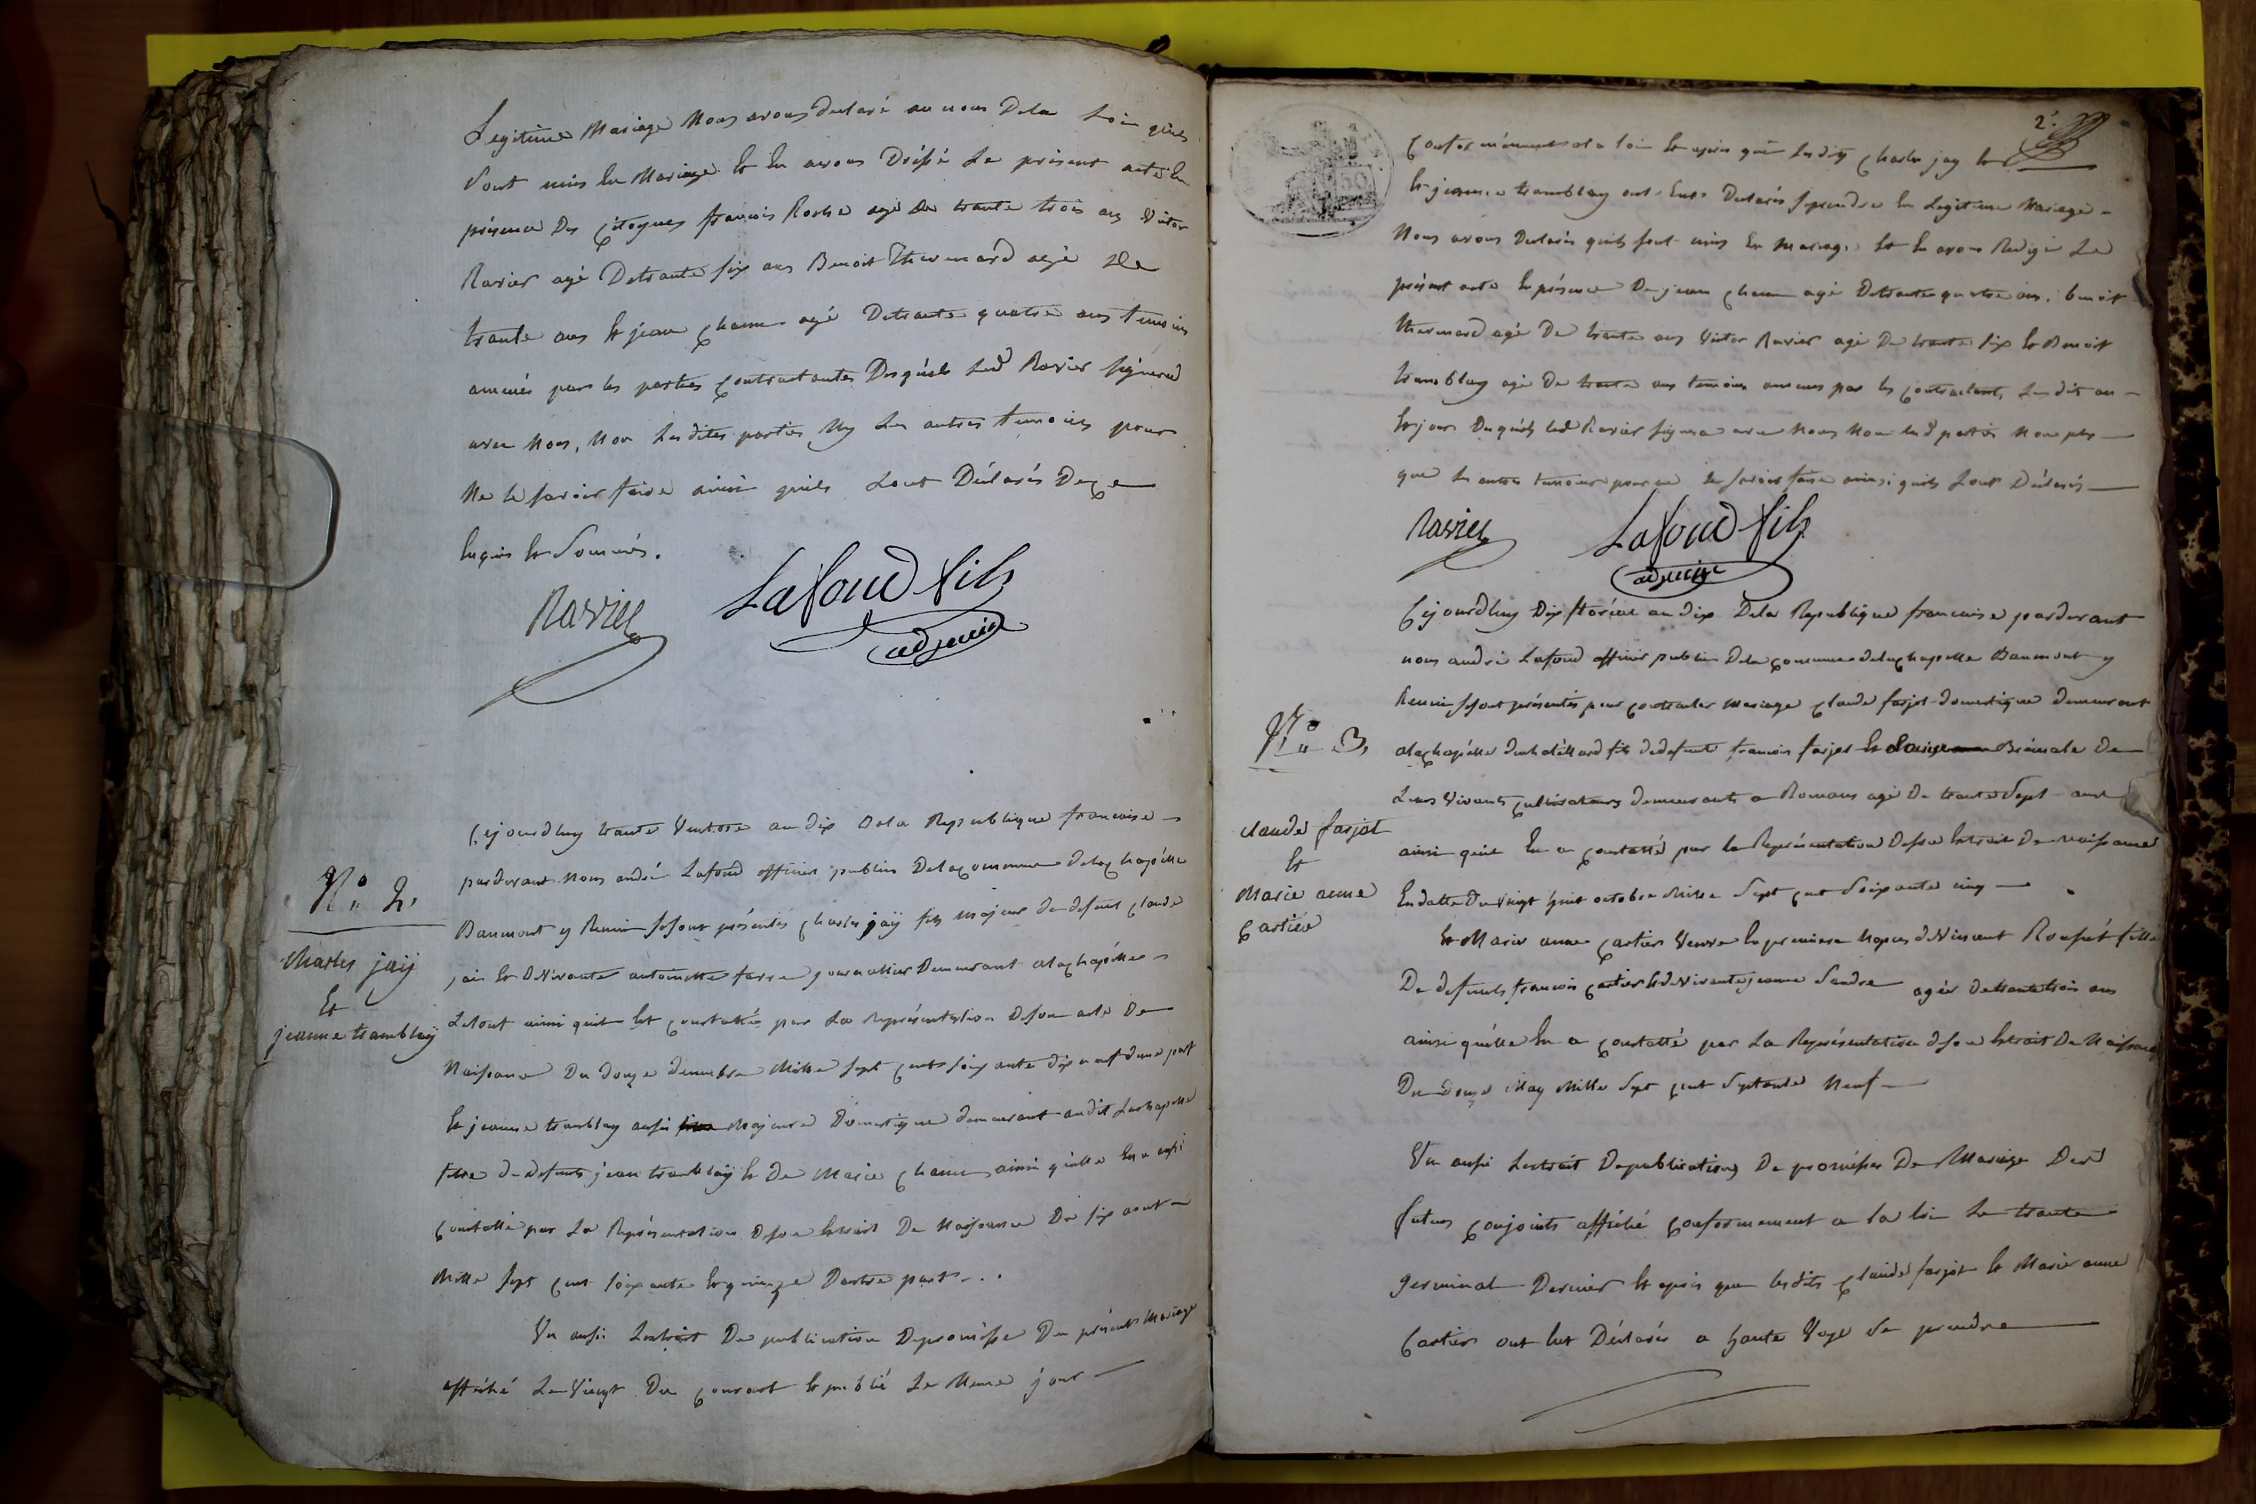 Legitime Mariage Nous avons declaré au nom Dela Loi quils
Sont unis En Mariage Et En avons Dréssé Le présent acte En
présence Des Citoyens francois Roche agé De trante trois ans Victor
Ravier agé De trante six ans Benoit Thevenard agé De
trante ans Et jean Chame agé De trante quatre ans temoins
amenés par les parties Contractantes Desquéls Led Ravier signera
avec Nous, Non Lesdites parties Ny Les autres temoins pour
Ne le savoir faire ainsi quils Lont Déclarés De ce
Enquis Et Sommés.
Ravier Lafond fils
adjoint
N° 2.
Charles jaÿ
Et
jeanne tramblaÿ
Cejourdhuy trante Ventose an dix Dela Republique francaise
pardevant Nous andré Lafond officier publics Dela Commune dela Chapélle
Baumont y Reuni se sont présentés Charles jaÿ fils Majeur de defunt Claude
jai Et De Vivante antoinette farge journallier Demeurant ala Chapélle
Letout ainsi quil Est Constatté par La Représentation De son acte De
Naissance Du douze decembre Mille sept cents soixante dix neuf dune part
Et jeanne tramblay aussi Majeure Domestique demeurant audit Lachapelle
fille de defunts jean tramblaÿ Et De Marie Chame, ainsi quélle En a aussi
Constatté par La Représentation De son Extrait De Naissance Du six aout
Mille sept cent soixante Et quinze Dautre part
Vu aussi Lextrait De publication De promésse Du présents Mariage
affiché Le Vingt Du Courant Et publié Le Meme jour
2e
Conformément ala loi Et apres que Lesdits Charles jay Et
Et jeanne tramblay ont Eut Declarés se prendre En Legitime Mariage
Nous avons Declarés quils sont unis En Mariage Et En avons Redigé Le
présent acte En présence De jean Chame agé De trante quatre ans, benoit
thevenard agé De trante ans Victor Ravier agé De trante six Et Benoit
tramblay agé De trante ans temoins amenes par les Contractants, Les dit an
Et jour Desquéls Led Ravier signera avec Nous Non Lesd parties Non plus
que Les autres temoins pour ne le savoir faire ainsi quils Lont Déclarés
Ravier Lafond fils
adjoint
N° 3
Claude farjot
Et
Marie anne
Cartier
Cejourdhuy Dix floréal an dix Dela Republique francaise pardevant
nous andré Lafond officier public Dela Commune dela Chapelle Baumont y
Reuni se sont présentés pour Contracter Mariage Claude farjot domestique demeurant
ala Chapélle fils de defunt francois farjot Et De
Leurs Vivants Cultivateurs demeurants a Romans agé De trante Sept ans
ainsi quil En a Constatté par la Représentation De son Extrait De naissance
En datte Du Vingt huit octobre Mille Sept cent Soixante cinq
Et Marie anne Cartier Veuve En premiere Nopces de Vincent fille
De defunts francois Cartier Et de Vivante jeanne Sandre agée de trante trois ans
ainsi quélle En a Constatté par La Représentation de son Extrait De Naissance
Du douze May Mille Sept cent Septante Neuf
Vu aussi Lextrait De publications De promésses De Mariage Desd
futurs Conjoints affiché Conformement a la loi Le trante
germinal Dernier Et apres que lesdits Claude farjot Et Marie anne
Cartier ont Eut Déclarés a haute Voye Se prendre